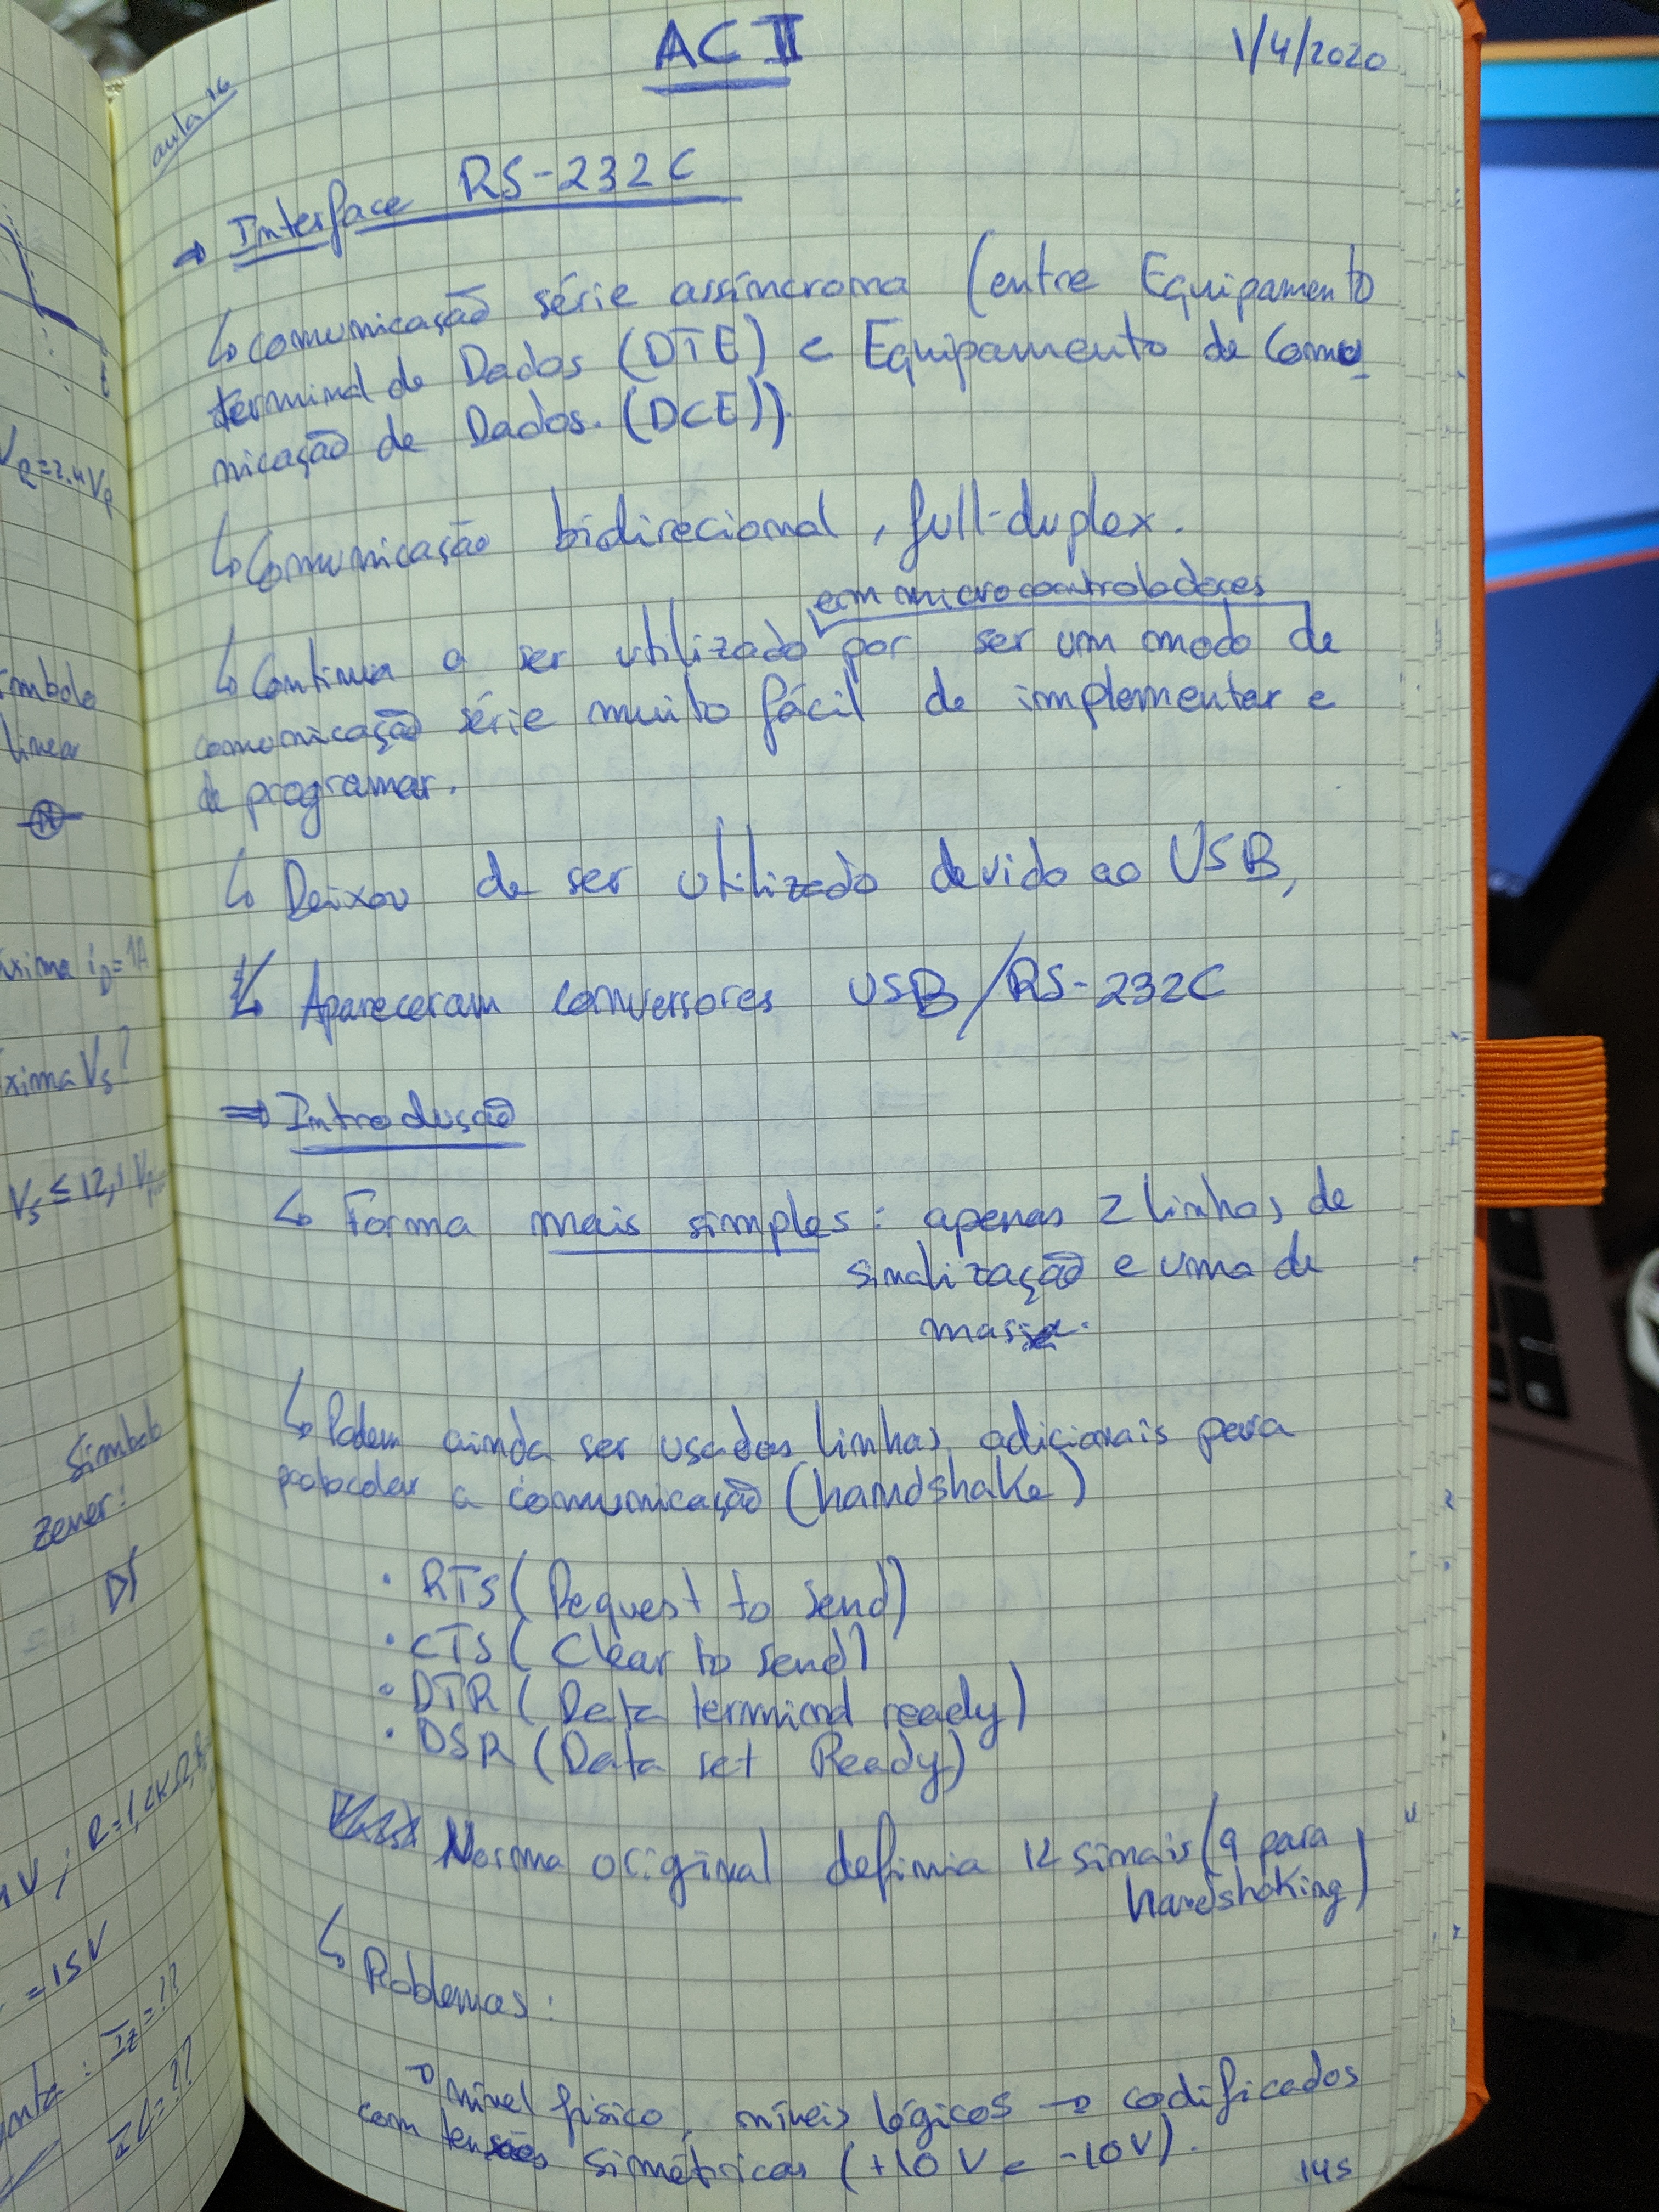 AC II
1/4/2020
aula 16
→ Interface RS-232C
↳ comunicação série assíncrona (entre Equipamento
terminal de Dados (DTE) e Equipamento de Comu
nicação de Dados. (DCE)).
↳ Comunicação bidirecional, full-duplex.
em microcontroladores
↳ Continua a ser utilizado por ser um modo de
comunicação série muito fácil de implementar e
de programar.
↳ Deixou de ser utilizado devido ao USB,
↳ Apareceram conversores USB/RS-232C
⇒ Introdução
↳ Forma mais simples: apenas 2 linhas de
sinalização e uma de
massa.
↳ Podem ainda ser usadas linhas adicionais para
protocolar a comunicação (handshake)
• RTS (Request to send)
• CTS (Clear to send)
• DTR (Data terminal ready)
• DSR (Data set Ready)
Norma original definia 12 sinais (9 para
handshaking)
↳ Problemas:
→ nível físico, níveis lógicos → codificados
com tensões simétricas (+10V e -10V).
145
t
linear
Vs ≤ 12,1 V
Símbolo
zener:
= 15V
Iz=??
IL=??